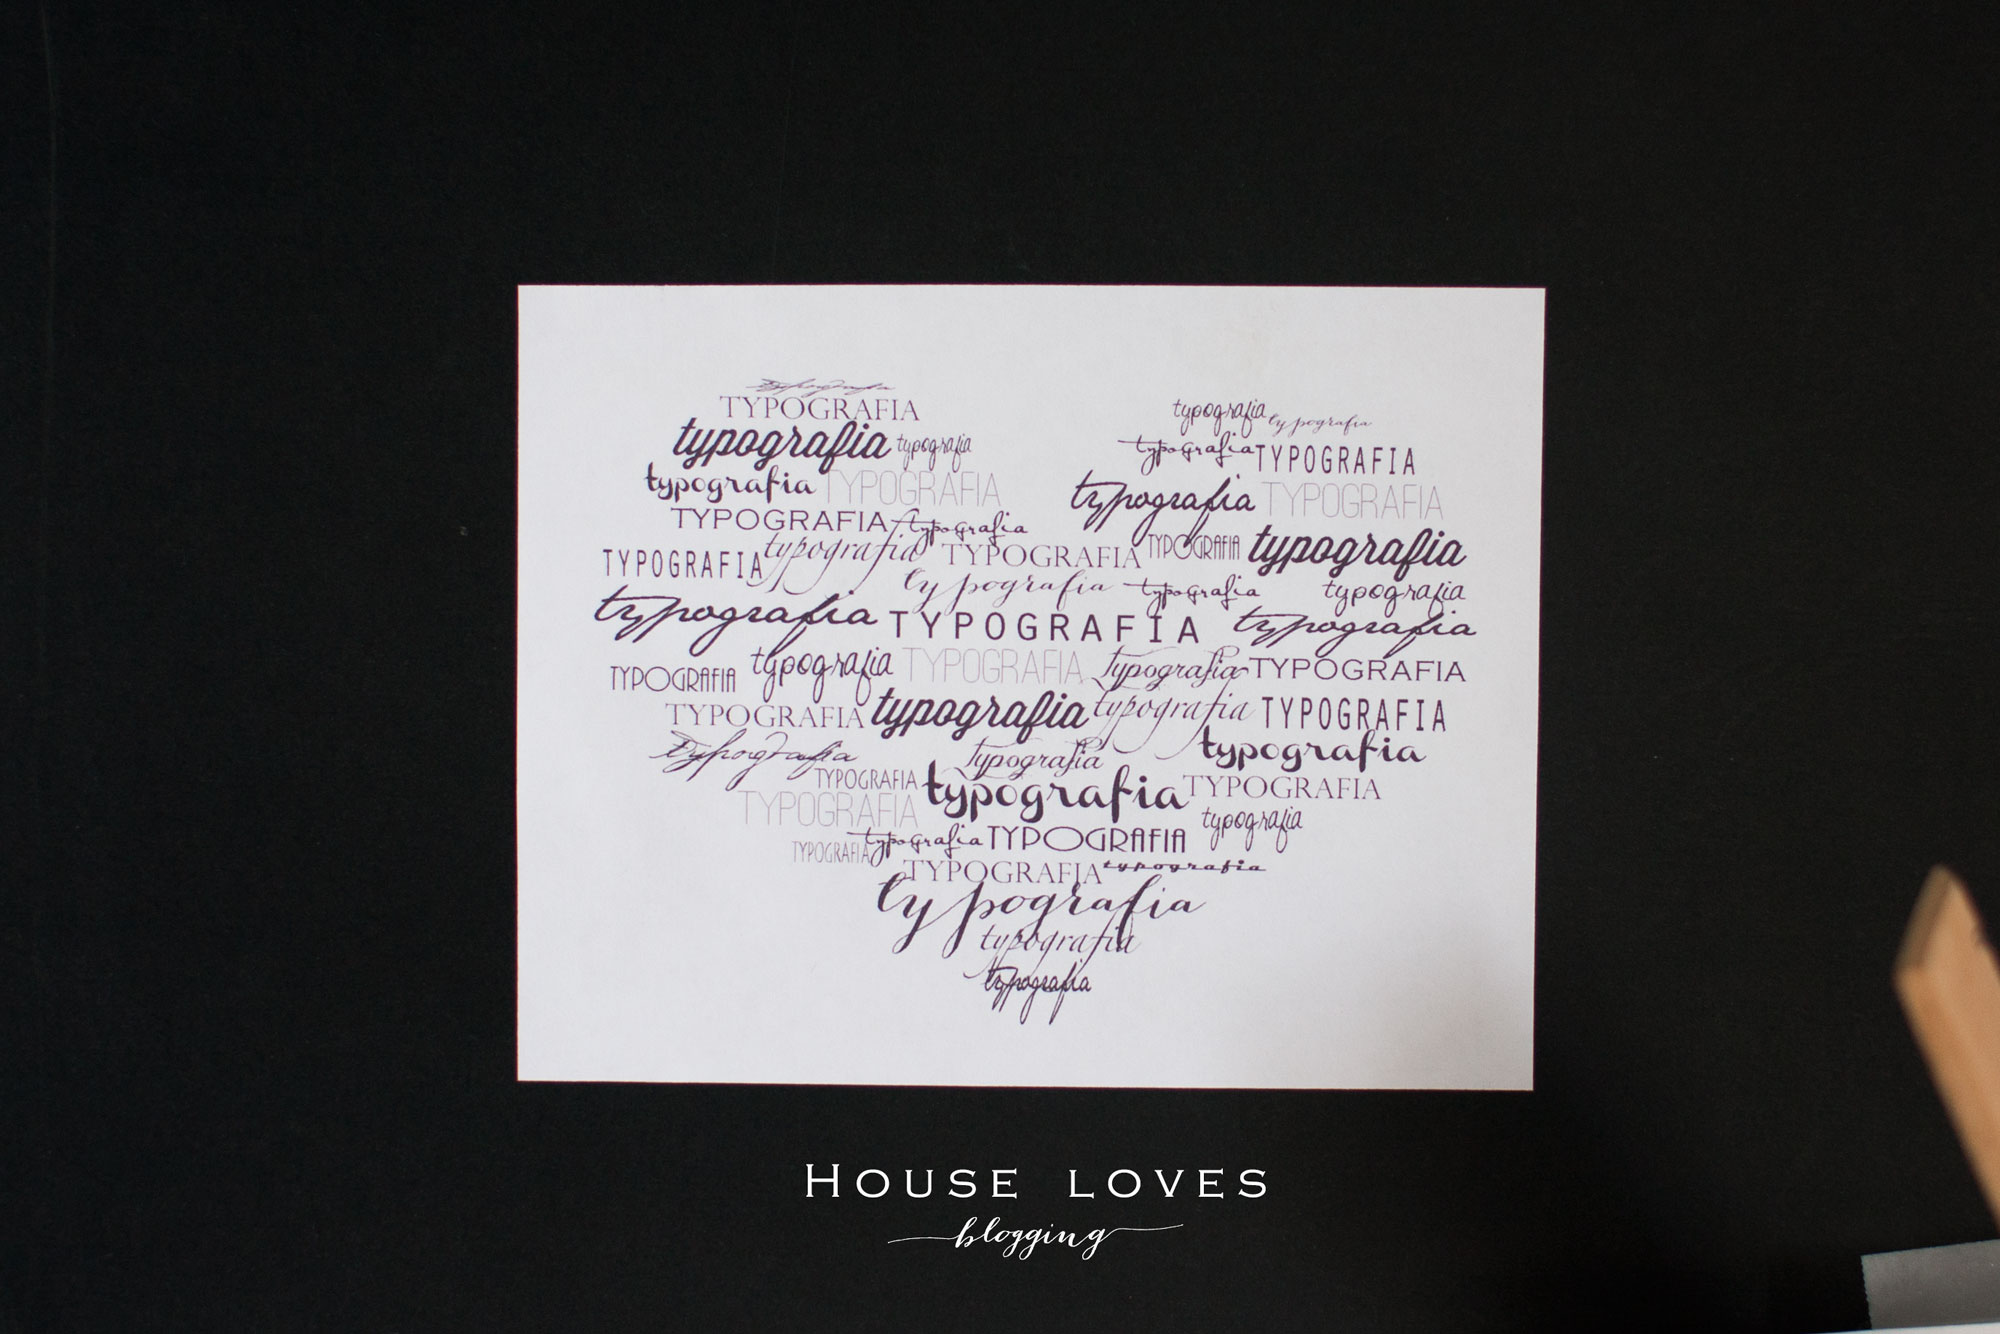 typografia
TYPOGRAFIA
typografia typografia
typografia typografia
typografia TYPOGRAFIA
typografia TYPOGRAFIA
typografia TYPOGRAFIA
TYPOGRAFIA typografia
TYPOGRAFIA typografia TYPOGRAFIA TYPOGRAFIA typografia
typografia typografia typografia
typografia TYPOGRAFIA typografia
TYPOGRAFIA typografia TYPOGRAFIA typografia TYPOGRAFIA
TYPOGRAFIA typografia typografia TYPOGRAFIA
typografia typografia typografia
TYPOGRAFIA typografia TYPOGRAFIA
TYPOGRAFIA typografia
TYPOGRAFIA typografia TYPOGRAFIA
TYPOGRAFIA typografia
typografia
typografia
typografia
HOUSE LOVES
blogging